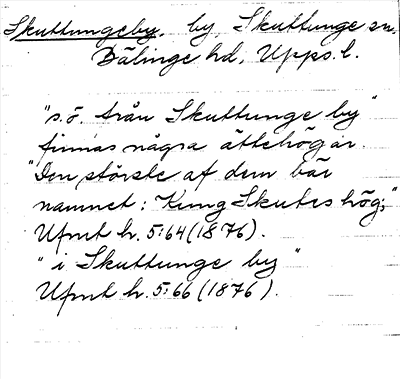 Skuttungeby, by Skuttunge sn,
Bälinge hd, Upps. l.
"s.ö. från Skuttunge by"
finnas några ättehögar.
"Den största af dem bär
namnet: Kung Skutes hög;"
Ufmt h. 5:64 (1876).
"i Skuttunge by"
Ufmt h. 5:66 (1876).